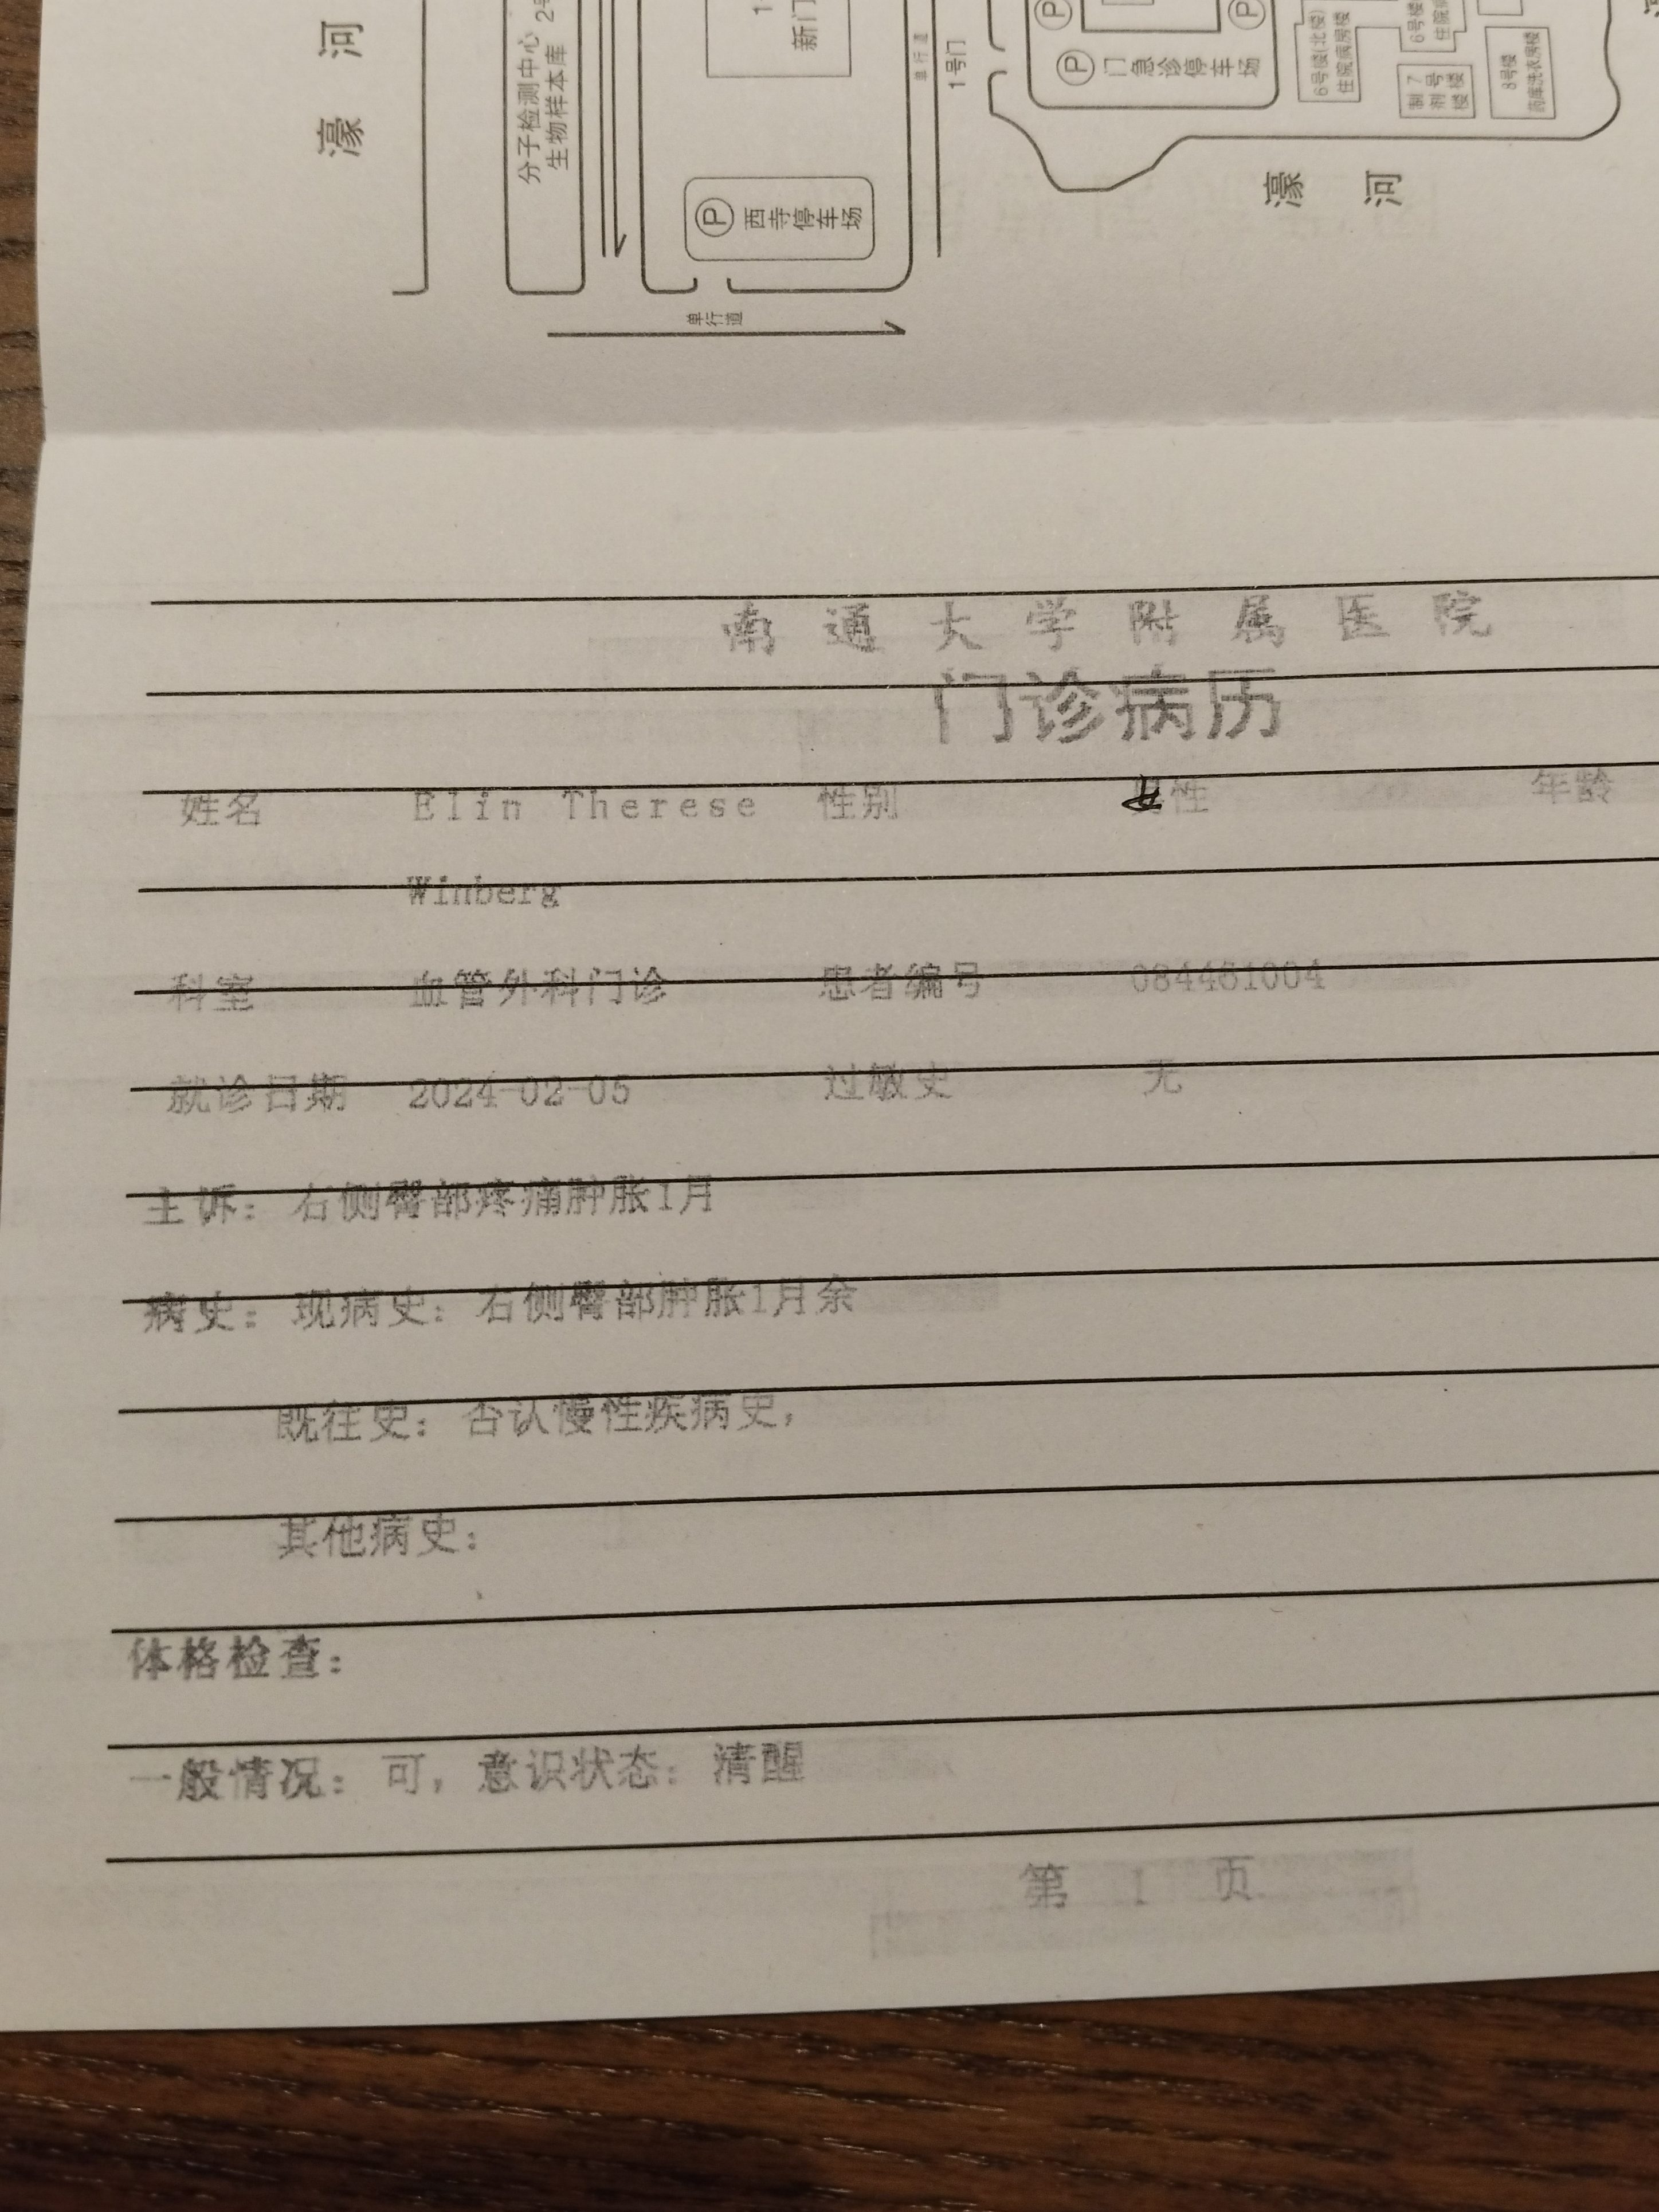 濠 河
分子检测中心
生物样本库
新门
Ⓟ 西寺停车场
单行道
单行道
1号门
Ⓟ Ⓟ
Ⓟ 门急诊停车场
6号楼(北楼)
住院病房楼
6号楼
7号楼
制剂楼
8号楼
药库洗衣房楼
濠 河
南通大学附属医院
门诊病历
姓名 Elin Therese 性别 性 年龄
Winberg
科室 血管外科门诊 患者编号 084461004
就诊日期 2024-02-05 过敏史 无
主诉：右侧臀部疼痛肿胀1月
病史：现病史：右侧臀部肿胀1月余
既往史：否认慢性疾病史，
其他病史：
体格检查：
一般情况：可，意识状态：清醒
第 1 页